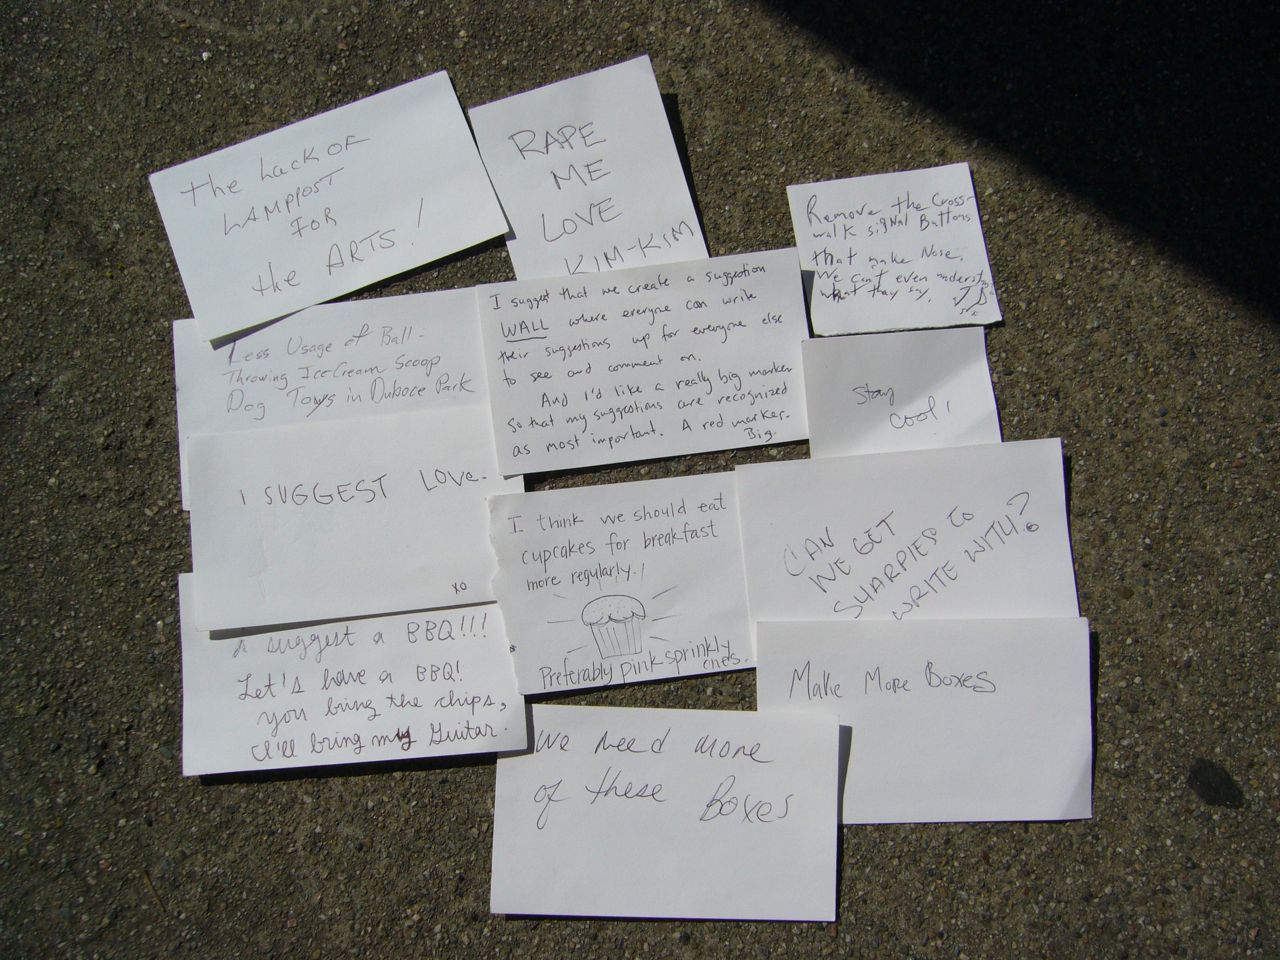 the Lack OF
LAMPPOST
FOR
the ARTS!
RAPE
ME
LOVE
KIM-KIM
Remove the Cross-
walk signal Buttons
that make Nose,
We can't even understand
what they say,
Less Usage of Ball-
Throwing Ice Cream Scoop
Dog Toys in Duboce Park
I suggest that we create a suggestion
WALL where everyone can write
their suggestions up for everyone else
to see and comment on.
And I'd like a really big marker
so that my suggestions are recognized
as most important. A red marker.
Big.
Stay
Cool!
I SUGGEST LOVE.
xo
I think we should eat
cupcakes for breakfast
more regularly!
Preferably pink sprinkly
ones.
CAN
WE GET
SHARPIES to
WRITE WITH?
I suggest a BBQ!!!
Let's have a BBQ!
you bring the chips,
I'll bring my Guitar.
Make More Boxes
We need more
of these Boxes